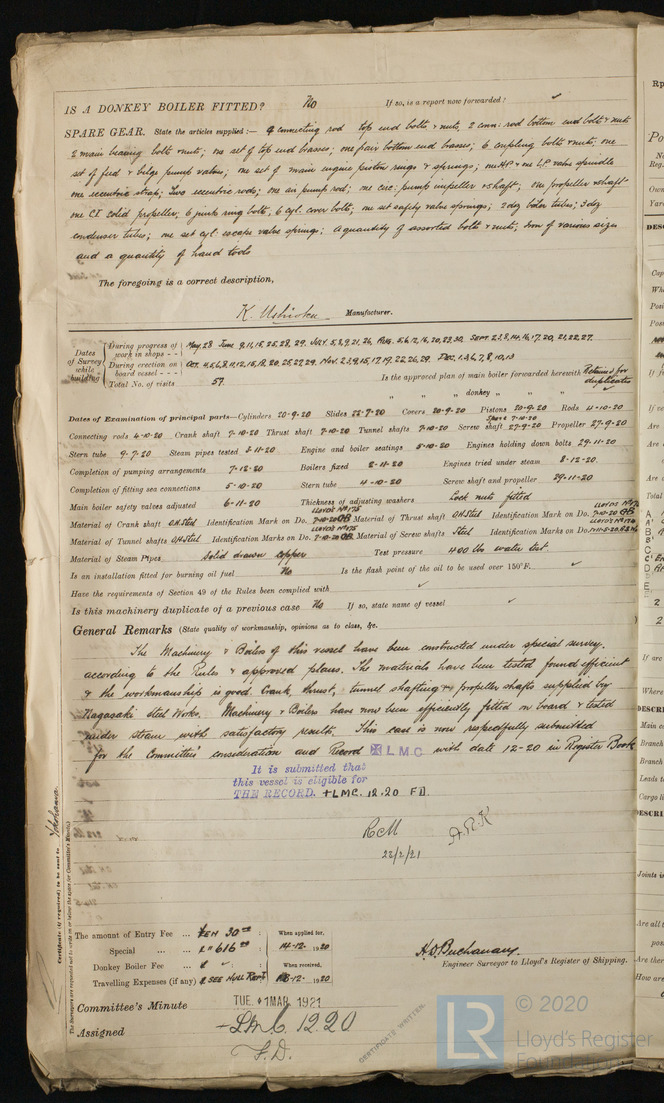 IS A DONKEY BOILER FITTED? No If so, is a report now forwarded? ✓
SPARE GEAR. State the articles supplied:— 4 connecting rod top end bolts & nuts, 2 conn: rod bottom end bolts & nuts
2 main bearing bolts & nuts; one set of top end brasses; one pair bottom end brasses; 6 coupling bolts & nuts; one
set of feed & bilge pump valves; one set of main engine piston rings & springs; one HP & one LP valve spindle
one eccentric strap; Two eccentric rods; one air pump rod; one circ: pump impeller & shaft; one propeller & shaft
one CI solid propeller; 6 junk ring bolts; 6 cyl. cover bolts; one set safety valve springs; 2 doz boiler tubes; 3 doz
condenser tubes; one set cyl. escape valve springs; A quantity of assorted bolts & nuts; Iron of various sizes
and a quantity of hand tools
The foregoing is a correct description,
K. Ushioku Manufacturer.
Dates of Survey while building
During progress of work in shops - - May. 28 June 9, 11, 15, 25, 28, 29. JULY. 5, 8, 9, 21, 26, AUG. 5, 6, 12, 16, 20, 23, 30. SEPT. 2, 3, 8, 14, 16, 17, 20, 21, 22, 27.
During erection on board vessel - - - OCT. 4, 5, 6, 8, 11, 12, 15, 18, 20, 25, 27, 29. NOV. 2, 3, 9, 15, 17, 19, 22, 26, 29. DEC. 1, 3, 6, 7, 8, 10, 13
Total No. of visits 57. Is the approved plan of main boiler forwarded herewith Retained for duplicates
" " " donkey " " "
Dates of Examination of principal parts—Cylinders 20-9-20 Slides 22-7-20 Covers 20-9-20 Pistons 20-9-20 Rods 4-10-20
Connecting rods 4-10-20 Crank shaft 7-10-20 Thrust shaft 7-10-20 Tunnel shafts 7-10-20 Screw shaft 27-9-20 Propeller 27-9-20
Stern tube 9-7-20 Steam pipes tested 3-11-20 Engine and boiler seatings 5-10-20 Engines holding down bolts 29-11-20
Completion of pumping arrangements 7-12-20 Boilers fixed 2-11-20 Engines tried under steam 8-12-20.
Completion of fitting sea connections 5-10-20 Stern tube 4-10-20 Screw shaft and propeller 29-11-20
Main boiler safety valves adjusted 6-11-20 Thickness of adjusting washers Lock nuts fitted
Material of Crank shaft O.H. Steel Identification Mark on Do. LLOYD'S No 175 7-10-20 GB Material of Thrust shaft O.H. Steel Identification Mark on Do. 7-10-20 GB
Material of Tunnel shafts O.H. Steel Identification Marks on Do. LLOYD'S No 175 7-10-20 GB Material of Screw shafts Steel Identification Marks on Do.
Material of Steam Pipes Solid drawn copper Test pressure 400 lbs water test
Is an installation fitted for burning oil fuel No Is the flash point of the oil to be used over 150°F. ✓
Have the requirements of Section 49 of the Rules been complied with ✓
Is this machinery duplicate of a previous case No If so, state name of vessel ✓
General Remarks (State quality of workmanship, opinions as to class, &c.
The Machinery & Boilers of this vessel have been constructed under special survey.
according to the Rules & approved plans. The materials have been tested found efficient
& the workmanship is good. Crank, thrust, tunnel shafting & propeller shafts supplied by
Nagasaki Steel Works. Machinery & Boilers have now been efficiently fitted on board & tested
under steam with satisfactory results. This case is now respectfully submitted
for the Committee's consideration and Record ✠ L M C with date 12-20 in Register Book
It is submitted that
this vessel is eligible for
THE RECORD. + LMC. 12.20 FD.
RCM
23/2/21
A.R.K
Certificate (if required) to be sent to Yokohama.
The Surveyors are requested not to write on or below the space for Committee's Minute.
The amount of Entry Fee ... YEN 30.00 : When applied for,
Special ... ... " 616.00 : 14-12- 1920
Donkey Boiler Fee ... £ ✓ : When received,
Travelling Expenses (if any) £ SEE HULL REPT 12- 1920
H.D. Buchanan.
Engineer Surveyor to Lloyd's Register of Shipping.
Committee's Minute TUE. 1 MAR. 1921
Assigned + L.M.C. 12.20
F.D.
CERTIFICATE WRITTEN
LR © 2020
Lloyd's Register
Foundation